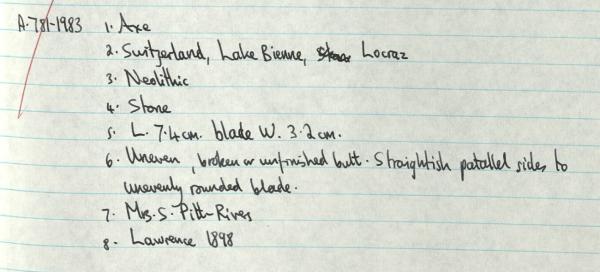 A.781-1983 1. Axe
2. Switzerland, Lake Bienne, Locraz
3. Neolithic
4. Stone
5. L. 7.4cm. blade W. 3.2cm.
6. Uneven, broken or unfinished butt. Straightish parallel sides to
unevenly rounded blade.
7. Mrs. S. Pitt-Rivers
8. Lawrence 1898